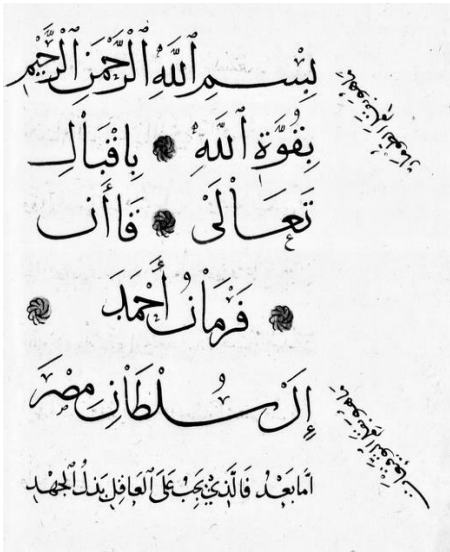 بِسْمِ ٱللَّهِ ٱلرَّحْمَنِ ٱلرَّحِيْمِ
بِقُوَّةِ ٱللَّهِ بِاقْبَالِ
تَعَالَىٰ قَاأَن
فَرْمَانُ أَحْمَدَ
إِلَىٰ سُلْطَانِ مِصْرَ
امّا بَعْد فَالَّذي يَجِبُ عَلَى العَاقِلِ بَذلُ الجُهْدِ